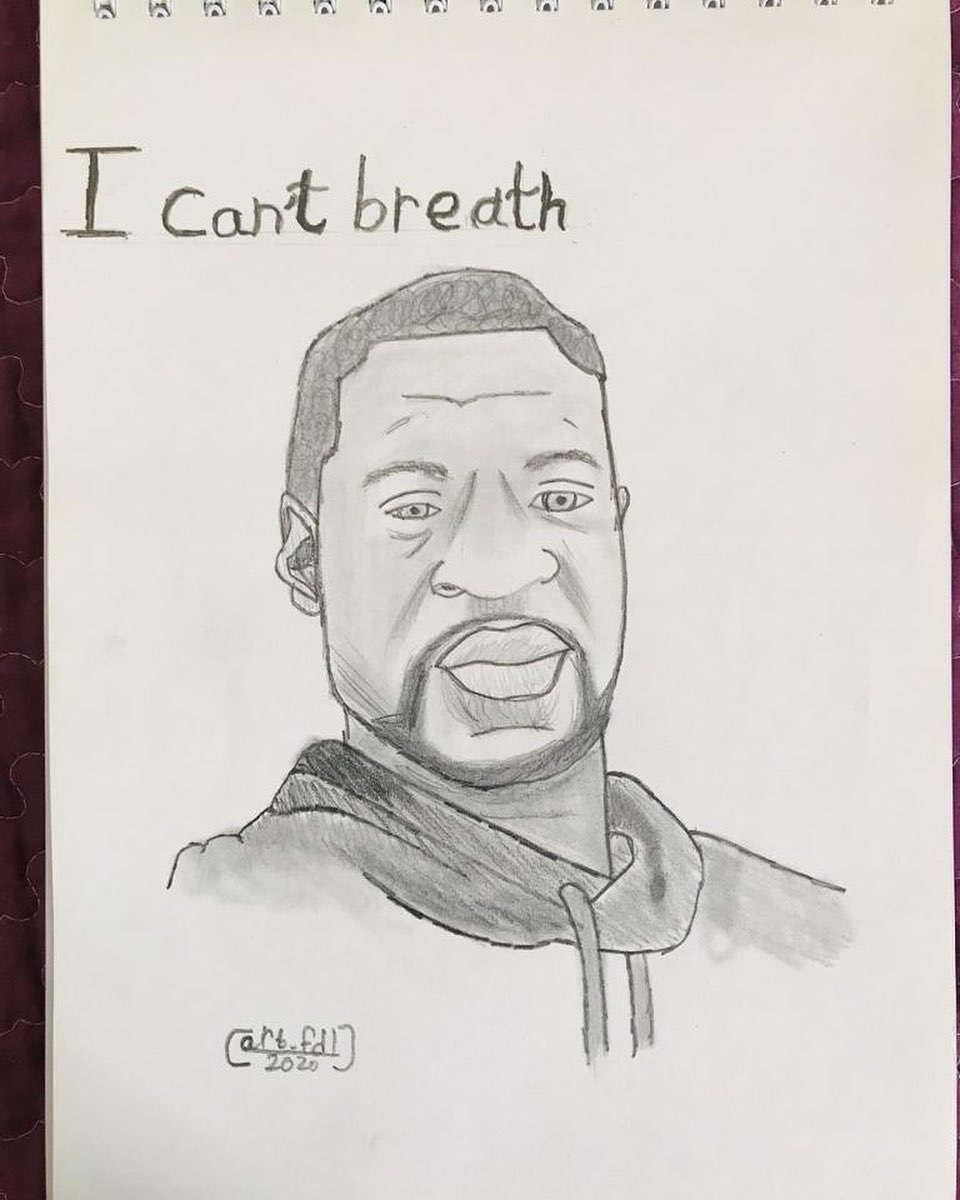 I can't breath
(art.fdl)
2020